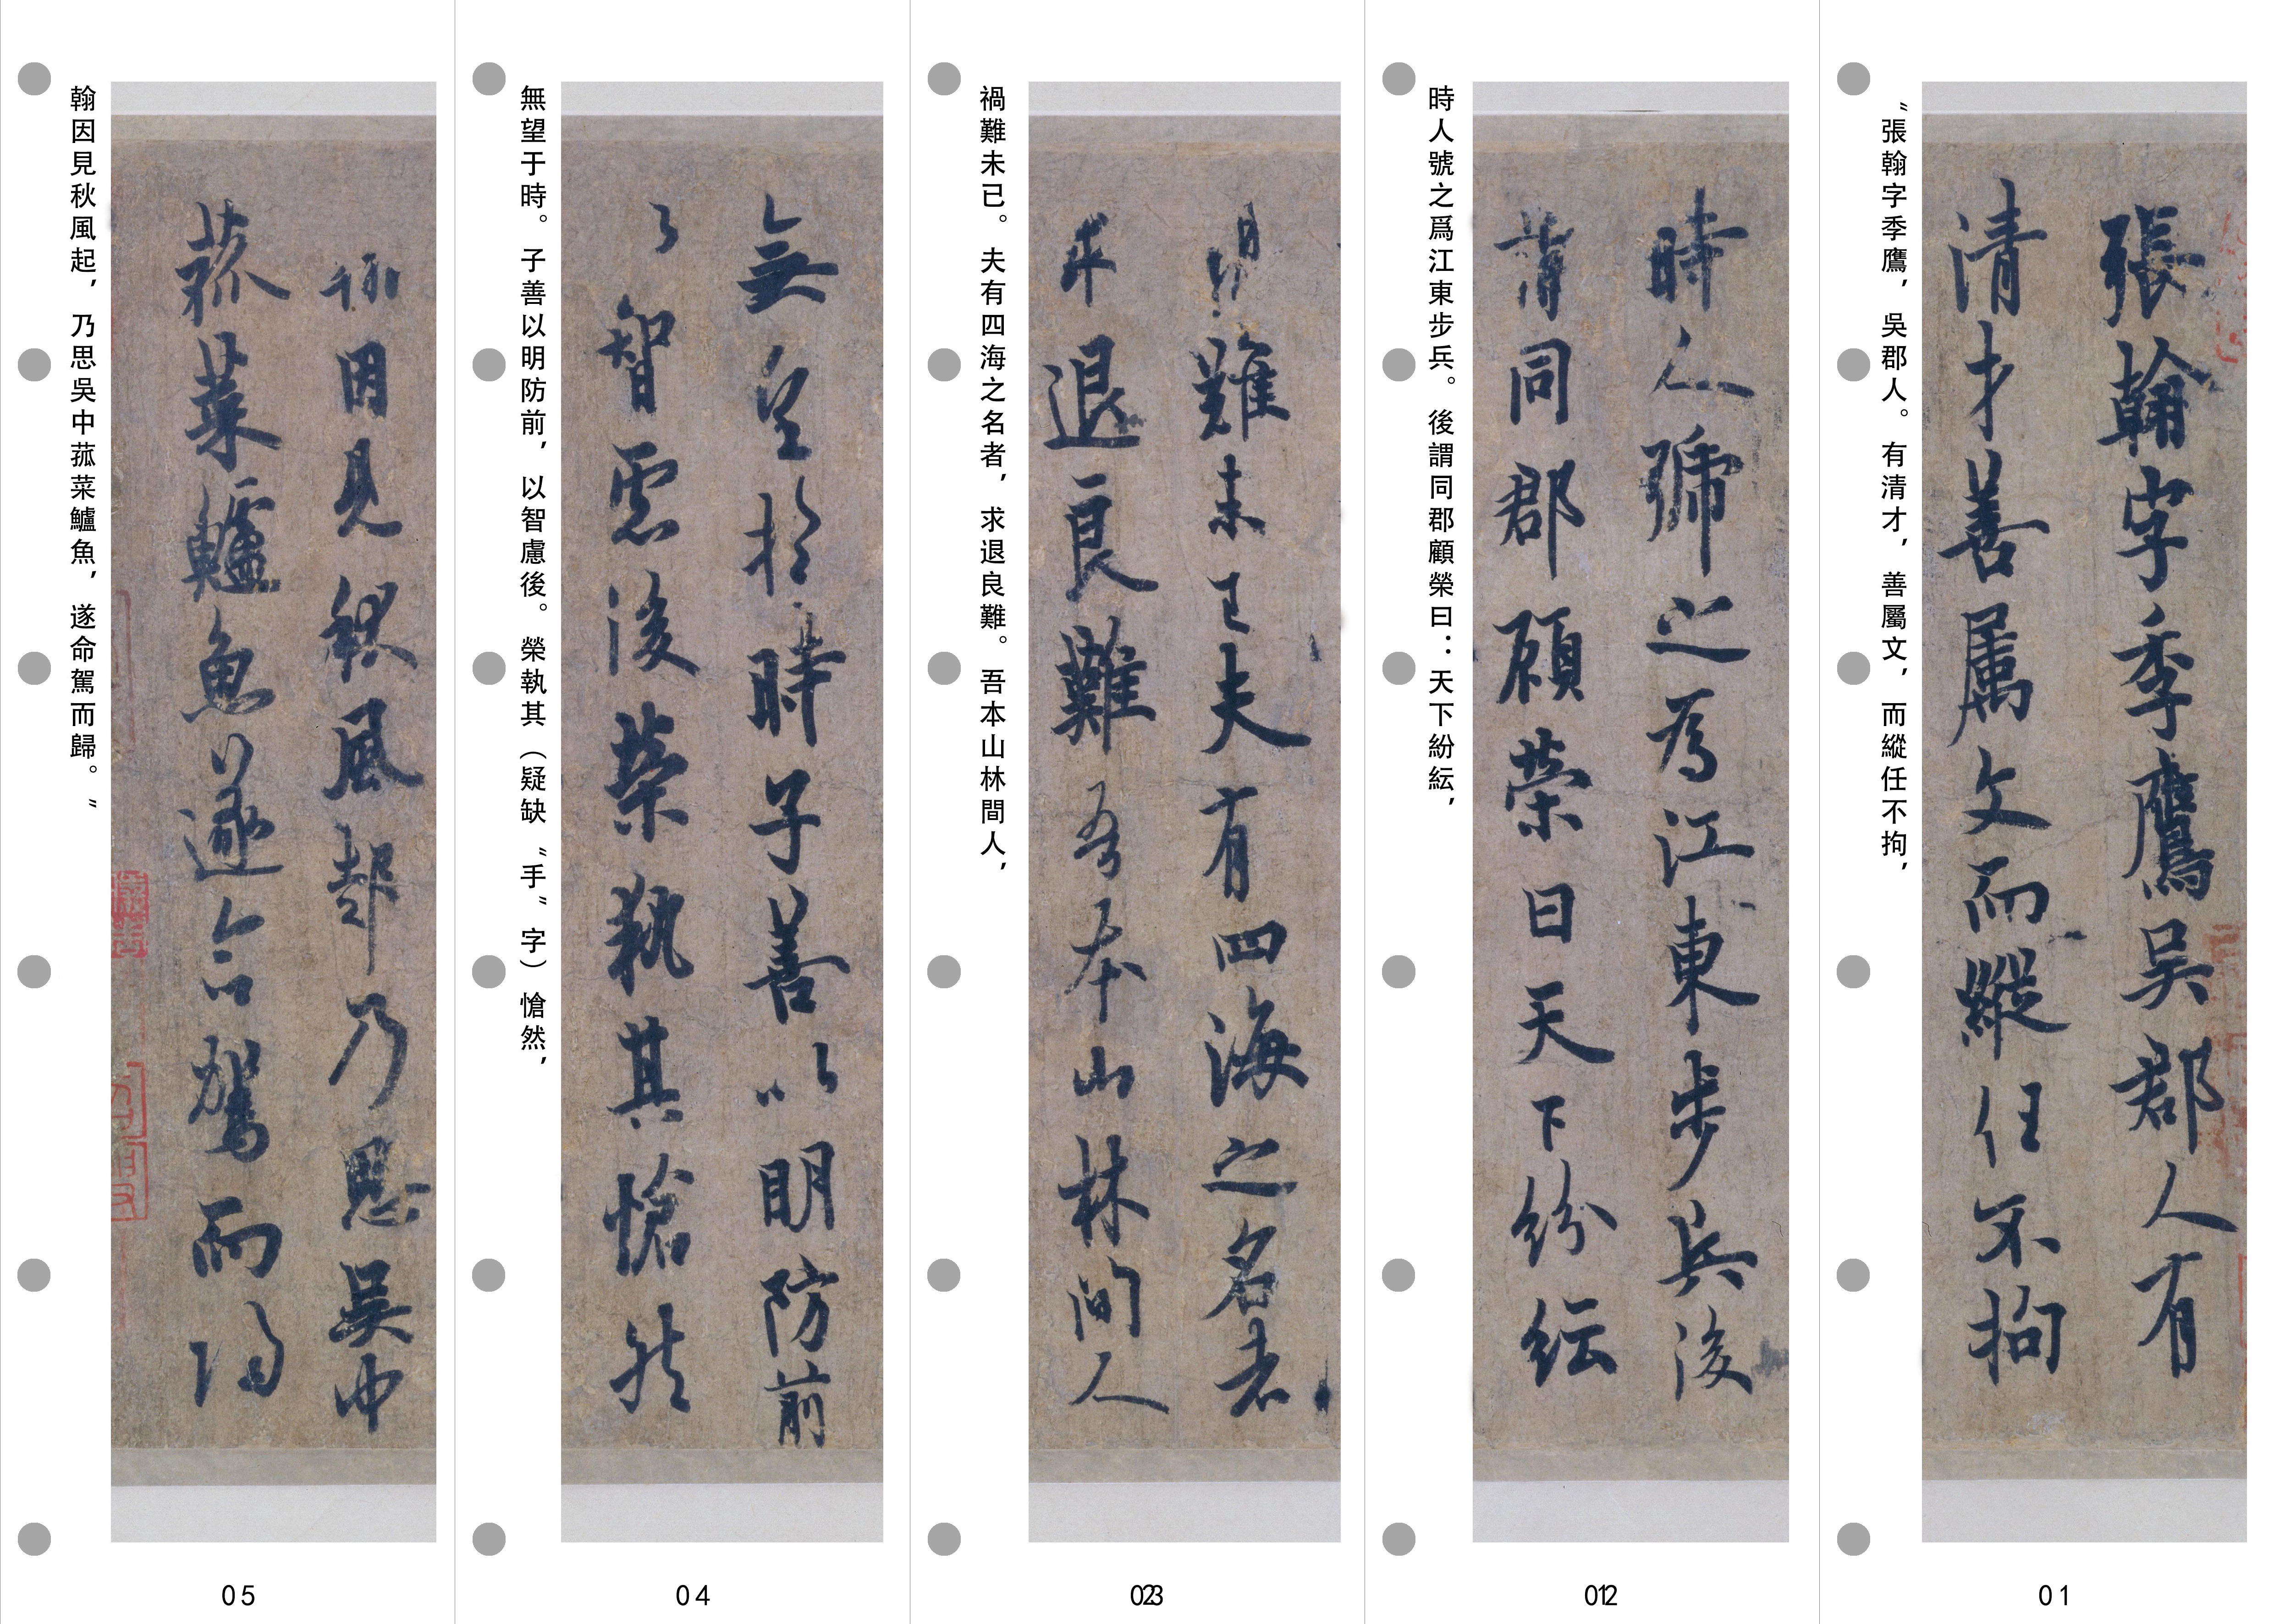 “張翰字季鷹，吳郡人。有清才，善屬文，而縱任不拘，
張翰字季鷹吳郡人有
清才善属文而縱任不拘
01
時人號之爲江東步兵。後謂同郡顧榮曰：天下紛紜，
時人號之為江東步兵後
謂同郡顧榮曰天下紛紜
禍難未已。夫有四海之名者，求退良難。吾本山林間人，
難未已夫有四海之名者
求退良難吾本山林間人
無望于時。子善以明防前，以智慮後。榮執其（疑缺“手”字）愴然，
無望於時子善以明防前
以智慮後榮執其愴然
04
翰因見秋風起，乃思吳中菰菜鱸魚，遂命駕而歸。”
翰因見秋風起乃思吳中
菰菜鱸魚遂命駕而歸
05